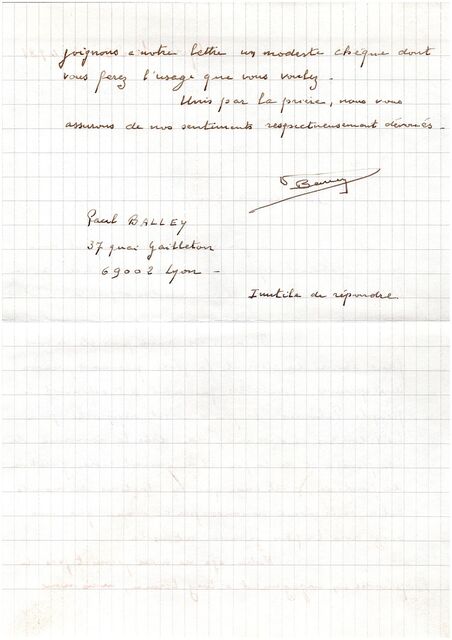 joignons a notre lettre un modeste chèque dont
vous ferez l'usage que vous voulez.
Unis par la prière, nous vous
assurons de nos sentiments respectueusement dévoués.
Paul BALLEY
37 quai Gailleton
69002 Lyon -
Inutile de répondre.